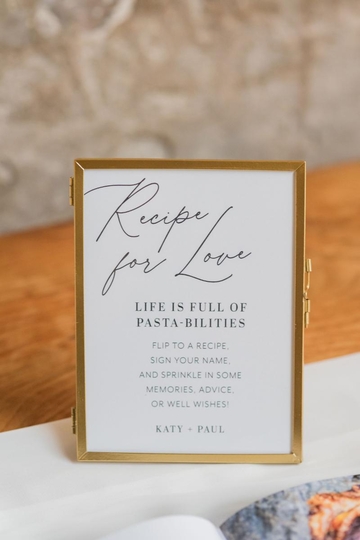 Recipe
for Love
LIFE IS FULL OF
PASTA-BILITIES
FLIP TO A RECIPE,
SIGN YOUR NAME,
AND SPRINKLE IN SOME
MEMORIES, ADVICE,
OR WELL WISHES!
KATY + PAUL